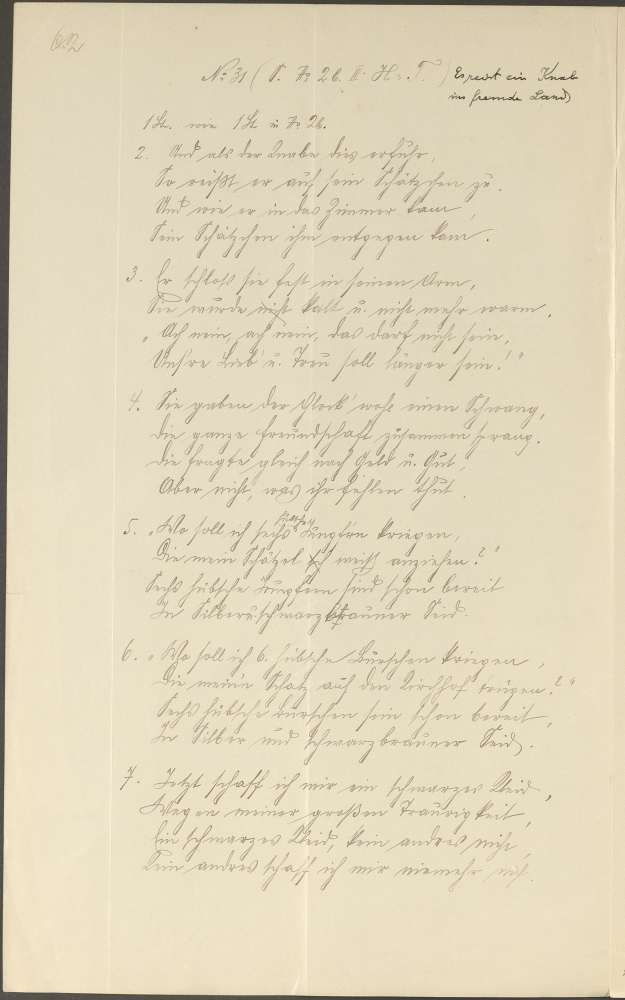 692
No 31 (S. No 26. II. H. T.) Es reist ein Knab
ins fremde Land)
1 St. wie 1 St in No 26.
2. Und als der Knabe dies erfuhr,
So reißt er auf sein Schätzchen zu.
Und wie er in das Zimmer kam,
Sein Schätzchen ihm entgegen kam.
3. Er schloß sie fest in seinen Arm,
Sie wurde kalt u. nicht mehr warm.
„Ach nein, ach nein, das darf nicht sein,
Uns're Lieb' u. Treu soll länger sein!"
4. Sie gaben der Glock' wohl einen Schwang,
Die ganze Freundschaft zusammen sprang.
Die fragte gleich nach Geld u. Gut,
Aber nicht, was ihr fehlen thut.
5. „Wo soll ich sechs hübsche Jungfrn kriegen,
Die mein Schätzel weiß anziehen?"
Sechs hübsche Jungfern sind schon bereit
In Silber u. schwarzbrauner Seid.
6. „Wo soll ich 6. hübsche Burschen kriegen,
Die mein'n Schatz auf den Kirchhof trügen?"
Sechs hübsche Burschen sein schon bereit,
In Silber und schwarzbrauner Seid.
7. Jetzt schaff ich mir ein schwarzes Kleid,
Wegen meiner großen Traurigkeit,
Ein schwarzes Kleid, kein andres nicht,
Kein andres schaff ich mir niemehr nicht.